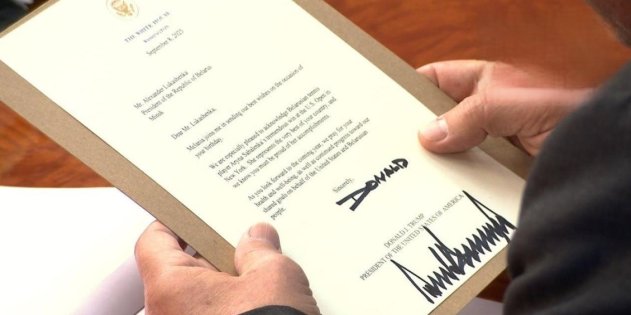 THE WHITE HOUSE
WASHINGTON
September 8, 2025
Mr. Alexander Lukashenka
President of the Republic of Belarus
Minsk
Dear Mr. Lukashenka:
Melania joins me in sending our best wishes on the occasion of
your birthday.
We are especially pleased to acknowledge Belarusian tennis
player Aryna Sabalenka's tremendous win at the U.S. Open in
New York. She represents the very best of your country, and
we know you must be proud of her accomplishments.
As you look forward to the coming year, we pray for your
health and well-being, as well as continued progress toward our
shared goals on behalf of the United States and Belarusian
people.
Sincerely,
DONALD
DONALD J. TRUMP
PRESIDENT OF THE UNITED STATES OF AMERICA